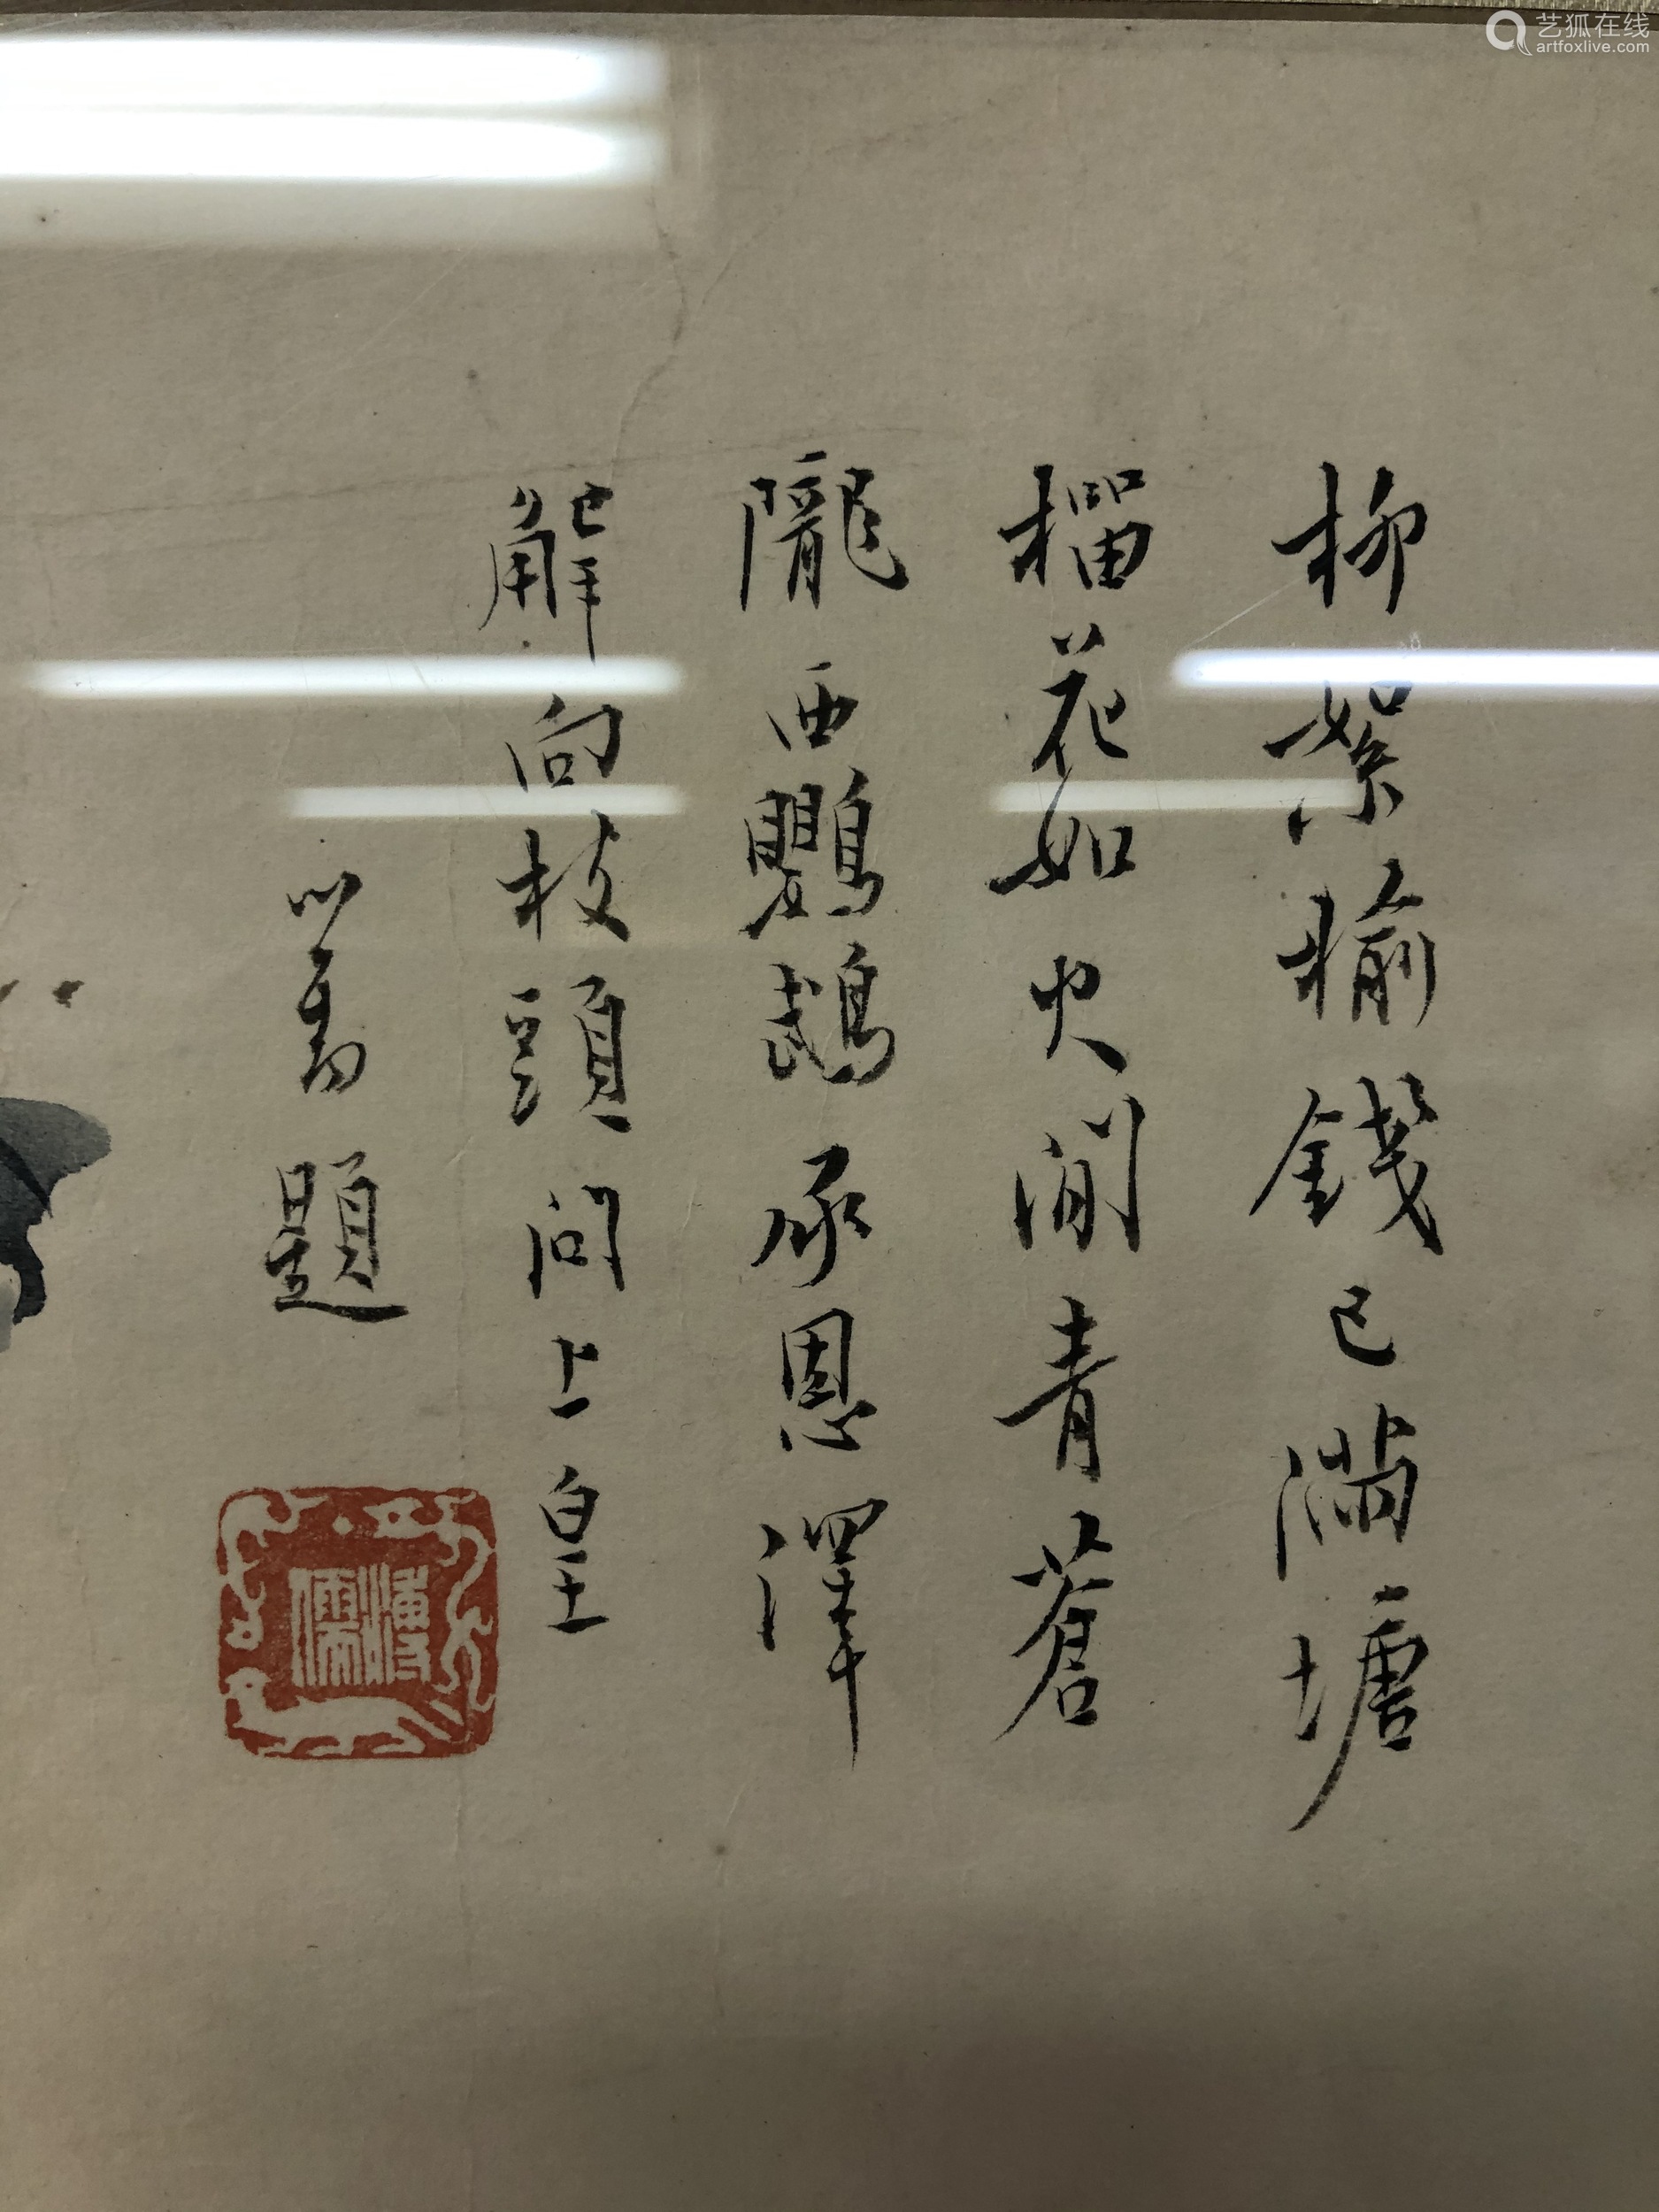 柳絮榆錢已滿塘
榴花如火閒青蒼
隴西鸚鵡承恩澤
解向枝頭問上皇
心畬題
溥儒
艺狐在线
artfoxlive.com